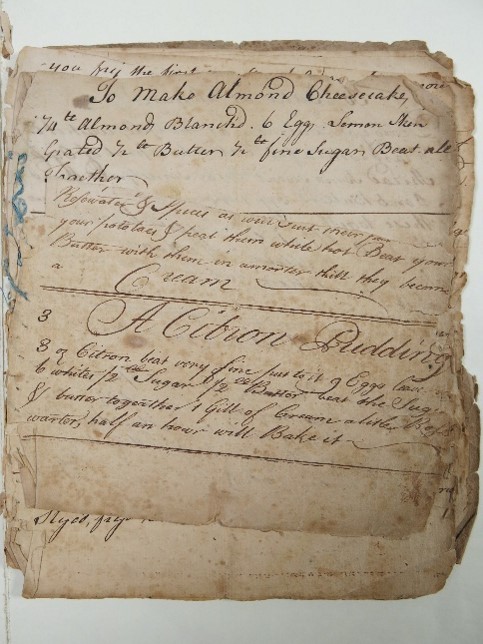 you fry the first
To Make Almond Cheesecake,
1/4 tt Almond Blanch'd. 6 Egg, Lemon Skin
Grated 1/2 tt Butter 1/2 tt fine Sugar Beat all
together
Rosewater & Spices as you
your potatoes & peal them while hot Beat your
Butter with them in a morter till they become
a Cream
3 A Citron Pudding
3 oz Citron beat very fine just 9 Eggs
6 whites 1/2 tt Sugar 1/2 tt Butter beat the Sugr
& butter together 1 Gill of Cream a little Rose
warter, half an hour will Bake it